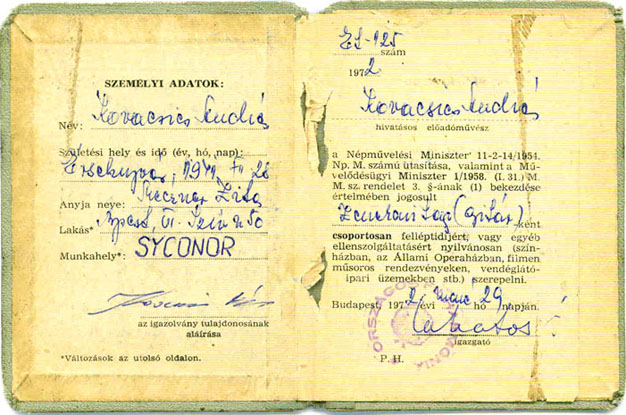 SZEMÉLYI ADATOK:
Név: Kovacsics András
Születési hely és idő (év, hó, nap):
Érsekujvár, 1941
Anyja neve: Zita
Lakás* Bpest, VI.
Munkahely*: SYCONOR
az igazolvány tulajdonosának
aláírása
*Változások az utolsó oldalon.
ES-125
szám
1972
Kovacsics András
hivatásos előadóművész
a Népművelési Miniszter 11-2-14/1954.
Np. M. számú utasítása, valamint a Mű-
velődésügyi Miniszter 1/1958. (I. 31.) M
M. sz. rendelet 3. §-ának (1) bekezdése
értelmében jogosult
(gitár) ként
csoportosan felléptidíjért, vagy egyéb
ellenszolgáltatásért nyilvánosan (szín-
házban, az Állami Operaházban, filmen
műsoros rendezvényeken, vendéglátó-
ipari üzemekben stb.) szerepelni.
Budapest, 1972 évi márc hó 29 napján.
igazgató
P. H.